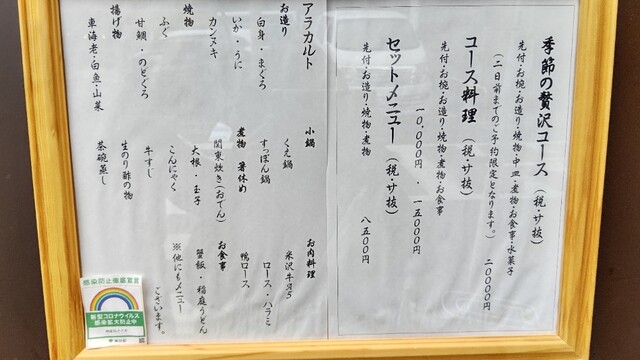 季節の贅沢コース (税・サ抜)
先付・お椀・お造り・焼物・中皿・煮物・お食事・水菓子
(二日前までのご予約限定となります。) 二〇〇〇〇円
コース料理 (税・サ抜)
先付・お椀・お造り・焼物・煮物・お食事
一〇、〇〇〇円 ・ 一五〇〇〇円
セットメニュー (税・サ抜)
先付・お造り・焼物・煮物
八五〇〇円
アラカルト
お造り
白身・まぐろ
いか・うに
カンヌキ
焼物
ふぐ
甘鯛・のどぐろ
揚げ物
車海老・白魚・山菜
小鍋
くえ鍋
すっぽん鍋
煮物 箸休め
関東炊き(おでん)
大根・玉子
こんにゃく
牛すじ
生のり酢の物
茶碗蒸し
お肉料理
米沢牛A5
ロース・ハラミ
鴨ロース
お食事
蟹飯・稲庭うどん
※他にもメニュー
ございます。
感染防止徹底宣言
新型コロナウイルス
感染拡大防止中
東京都